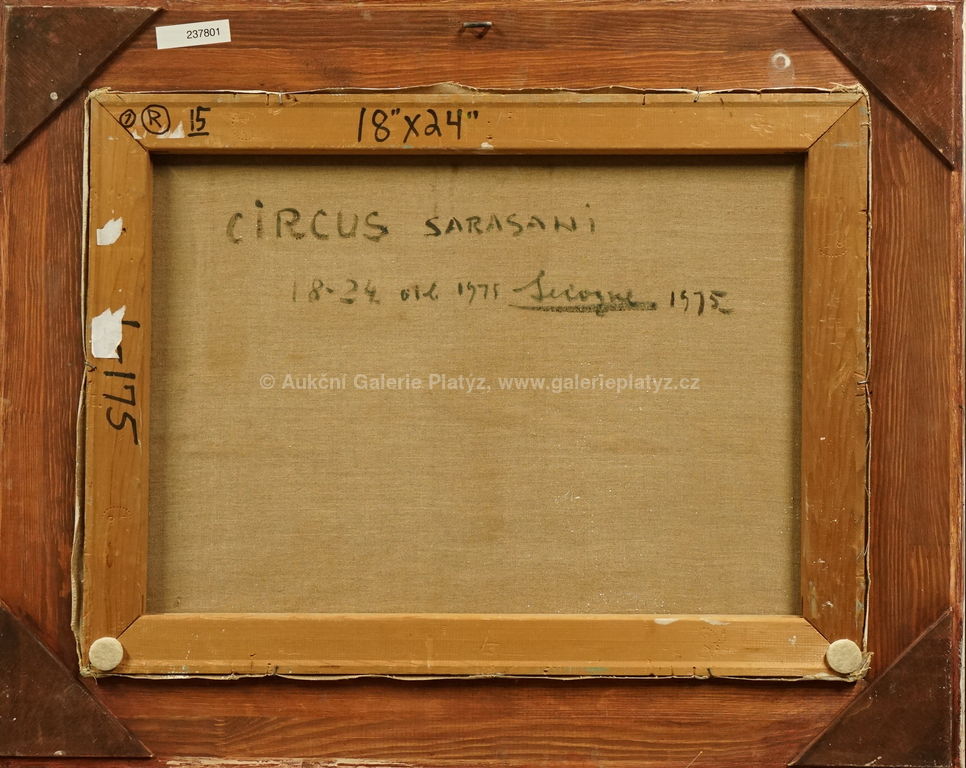 237801
7 R 15 18"X24"
CiRCUS SARASANi
18-24 oil 1975 1975
1-175
© Aukční Galerie Platýz, www.galerieplatyz.cz